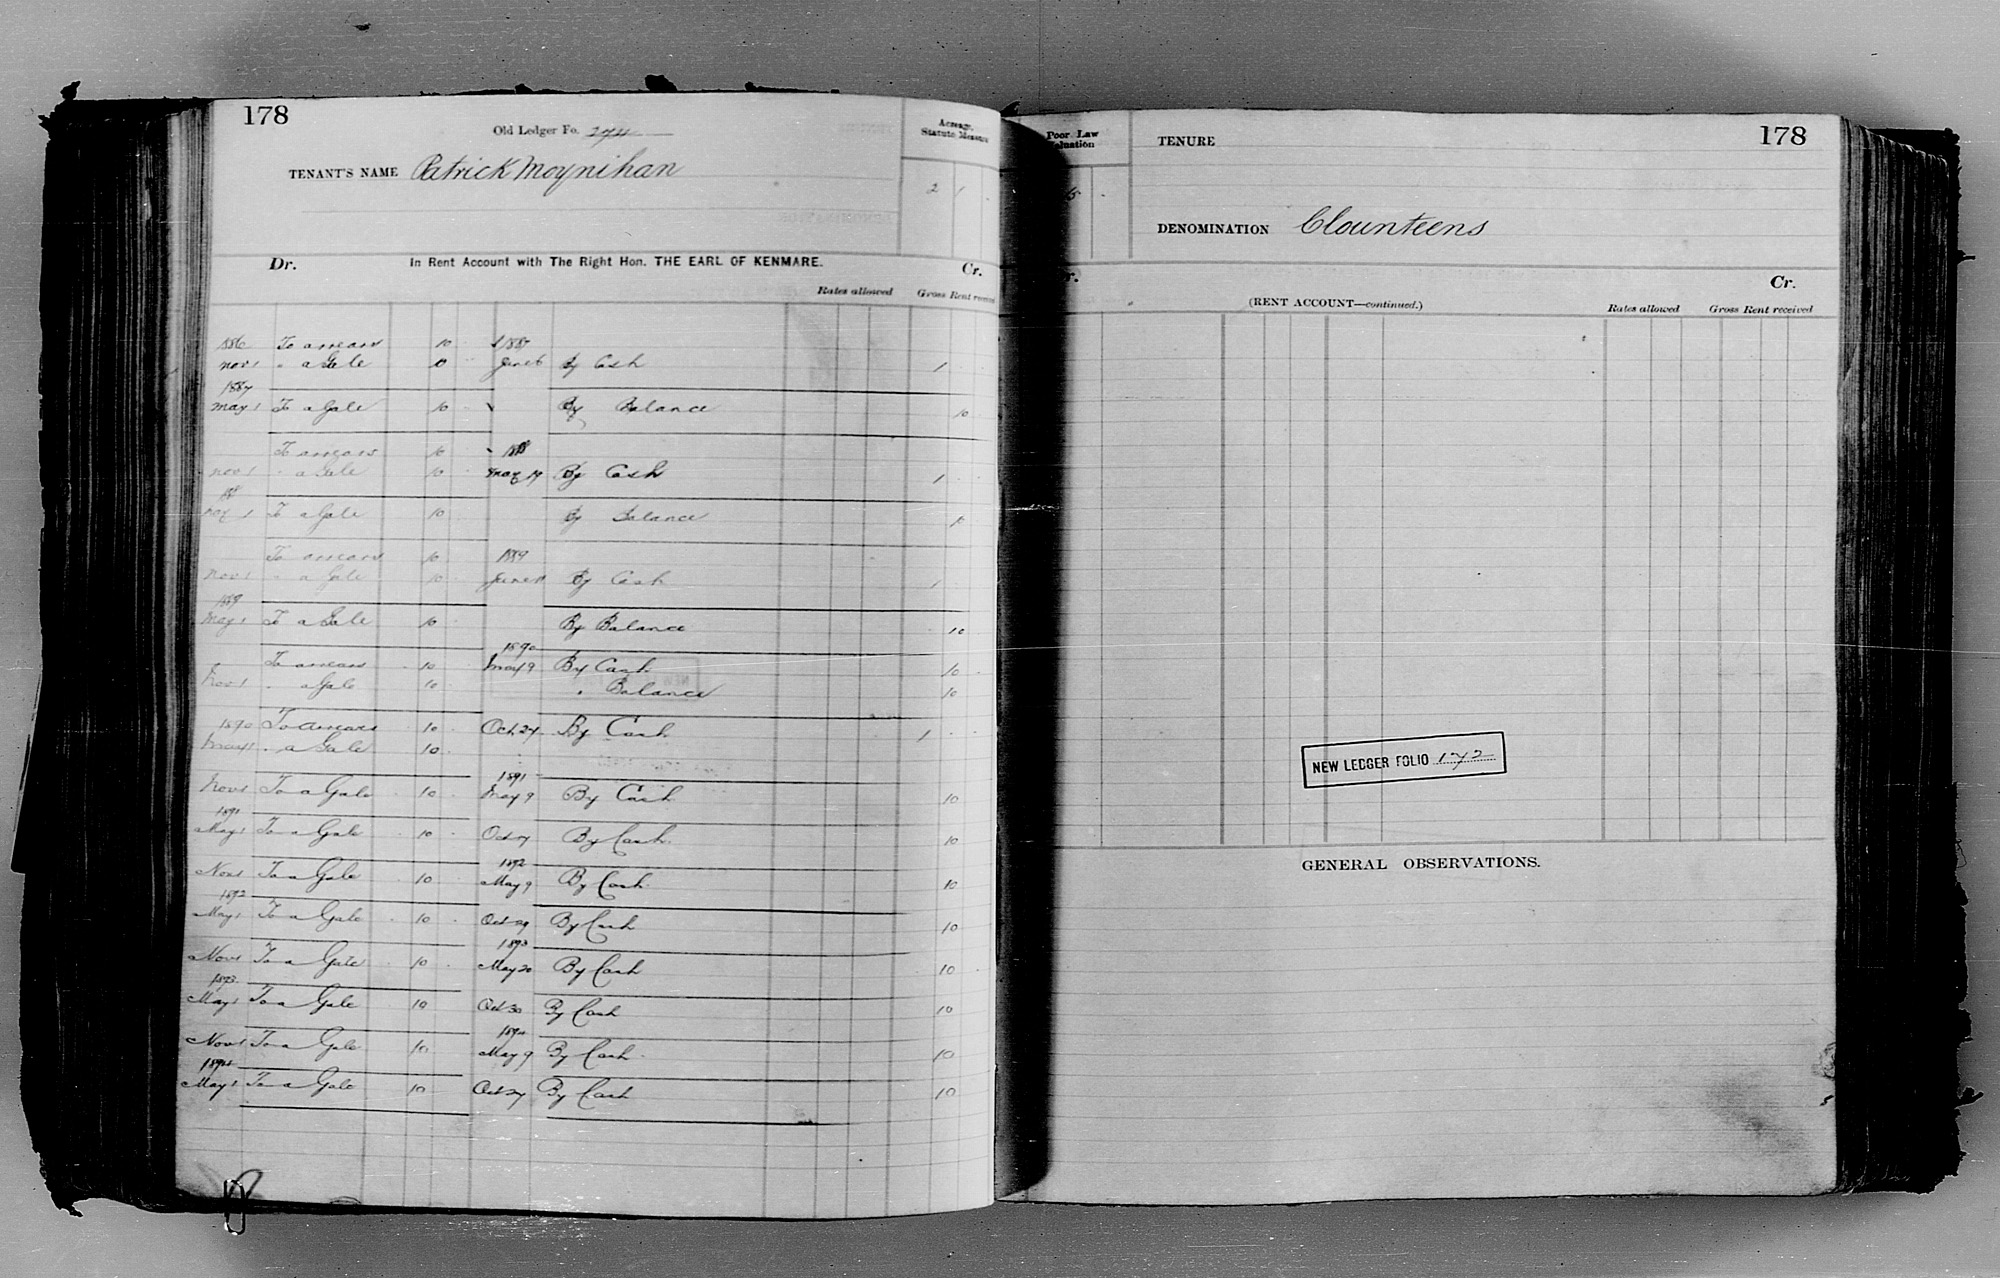 178
Old Ledger Fo. 274
TENANT'S NAME Patrick Moynihan
Acreage. Statute Measure
2 1
Dr. In Rent Account with The Right Hon. THE EARL OF KENMARE. Cr.
Rates allowed Gross Rent received
1886 To arrears 10 1887
Nov 1 " a Gale 10 June 6 By Cash 1
1887
May 1 To a Gale 10 By Balance 10
To arrears 10 1888
Nov 1 " a Gale 10 May 19 By Cash 1
188
May 1 To a Gale 10 By Balance 10
To arrears 10 1889
Nov 1 " a Gale 10 June 11 By Cash 1
1889
May 1 To a Gale 10 By Balance 10
1890
To arrears 10 May 9 By Cash 10
Nov 1 " a Gale 10 " Balance 10
1890 To arrears 10 Oct 27 By Cash 1
May 1 " a Gale 10
1891
Nov 1 To a Gale 10 May 9 By Cash 10
1891
May 1 To a Gale 10 Oct By Cash 10
1892
Nov 1 To a Gale 10 May 9 By Cash 10
1892
May 1 To a Gale 10 Oct 29 By Cash 10
1893
Nov 1 To a Gale 10 May 20 By Cash 10
1893
May 1 To a Gale 10 Oct 30 By Cash 10
1894
Nov 1 To a Gale 10 May 9 By Cash 10
1894
May 1 To a Gale 10 Oct 27 By Cash 10
Poor Law Valuation
TENURE
178
DENOMINATION Clounteens
(RENT ACCOUNT—continued.)
Cr.
Rates allowed Gross Rent received
NEW LEDGER FOLIO 172
GENERAL OBSERVATIONS.